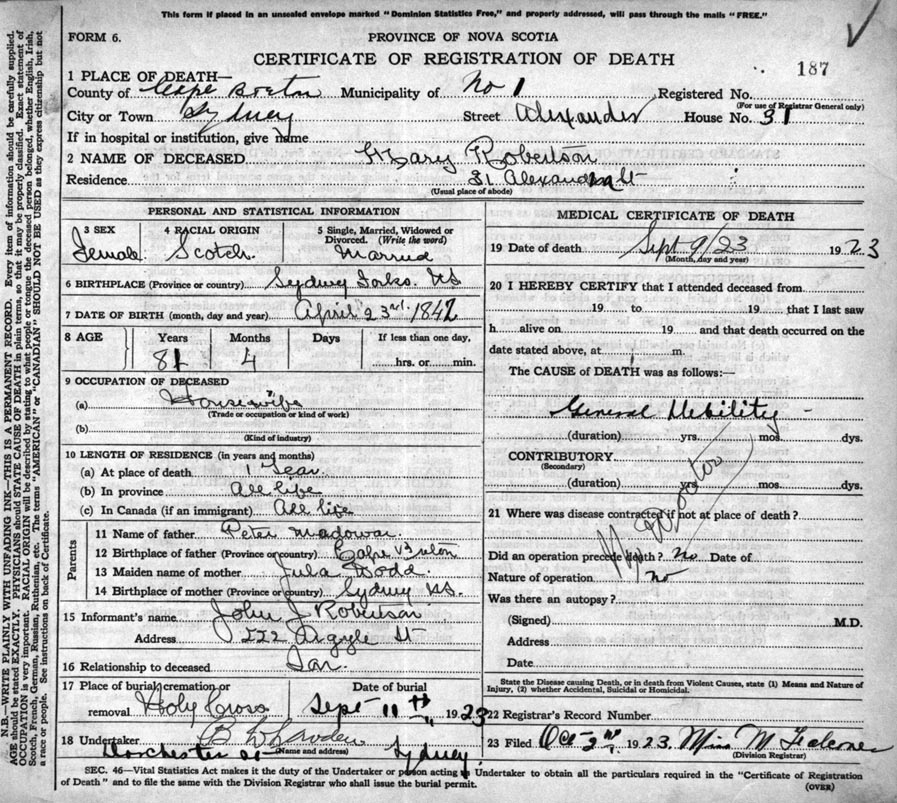 This form if placed in an unsealed envelope marked "Dominion Statistics Free," and properly addressed, will pass through the mails "FREE."
FORM 6.
PROVINCE OF NOVA SCOTIA
CERTIFICATE OF REGISTRATION OF DEATH
187
1 PLACE OF DEATH—
County of Cape Breton Municipality of No 1 Registered No.
(For use of Registrar General only)
City or Town Sydney Street Alexander House No. 31
If in hospital or institution, give name
2 NAME OF DECEASED Mary Robertson
Residence 31 Alexander St
(Usual place of abode)
PERSONAL AND STATISTICAL INFORMATION
3 SEX Female
4 RACIAL ORIGIN Scotch
5 Single, Married, Widowed or Divorced. (Write the word) Married
6 BIRTHPLACE (Province or country) Sydney Forks NS
7 DATE OF BIRTH (month, day and year) April 23rd 1842
8 AGE Years 81 Months 4 Days If less than one day, hrs. or min.
9 OCCUPATION OF DECEASED
(a) Housewife
(Trade or occupation or kind of work)
(b)
(Kind of industry)
10 LENGTH OF RESIDENCE (in years and months)
(a) At place of death 1 Year
(b) In province All life
(c) In Canada (if an immigrant) All life
Parents
11 Name of father Peter
12 Birthplace of father (Province or country) Cape Breton
13 Maiden name of mother Jula Dodd
14 Birthplace of mother (Province or country) Sydney NS.
15 Informant's name John J Robertson
Address 222 Argyle St
16 Relationship to deceased Son
17 Place of burial, cremation or removal Holy Cross
Date of burial Sept 11th 1923
18 Undertaker
(Name and address)
Dorchester St Sydney
MEDICAL CERTIFICATE OF DEATH
19 Date of death Sept 9/23 1923
(Month, day and year)
20 I HEREBY CERTIFY that I attended deceased from
19 to 19 that I last saw
h alive on 19 and that death occurred on
date stated above, at m.
The CAUSE of DEATH was as follows:—
General Debility
(duration) yrs. mos. dys.
CONTRIBUTORY
(Secondary)
(duration) yrs. mos. dys.
No Doctor
21 Where was disease contracted if not at place of death?
Did an operation precede death? No Date of
Nature of operation No
Was there an autopsy?
(Signed) M.D.
Address
Date
State the Disease causing Death, or in death from Violent Causes, state (1) Means and Nature of Injury, (2) whether Accidental, Suicidal or Homicidal.
22 Registrar's Record Number
23 Filed Oct 2nd 1923 Miss M Falconer
(Division Registrar)
SEC. 46—Vital Statistics Act makes it the duty of the Undertaker or person acting as Undertaker to obtain all the particulars required in the "Certificate of Registration
of Death" and to file the same with the Division Registrar who shall issue the burial permit.
(OVER)
N.B.—WRITE PLAINLY WITH UNFADING INK—THIS IS A PERMANENT RECORD. Every item of information should be carefully supplied.
AGE should be stated EXACTLY. PHYSICIANS should STATE CAUSE OF DEATH in plain terms, so that it may be properly classified. Exact statement of
OCCUPATION is very important. RACIAL ORIGIN will be described by stating to what people or tongue the deceased person belonged, whether English, Irish,
Scotch, French, German, Russian, Ruthenian, etc. The terms "AMERICAN" or "CANADIAN" SHOULD NOT BE USED as they express citizenship but not
a race or people. See instructions on back of Certificate.